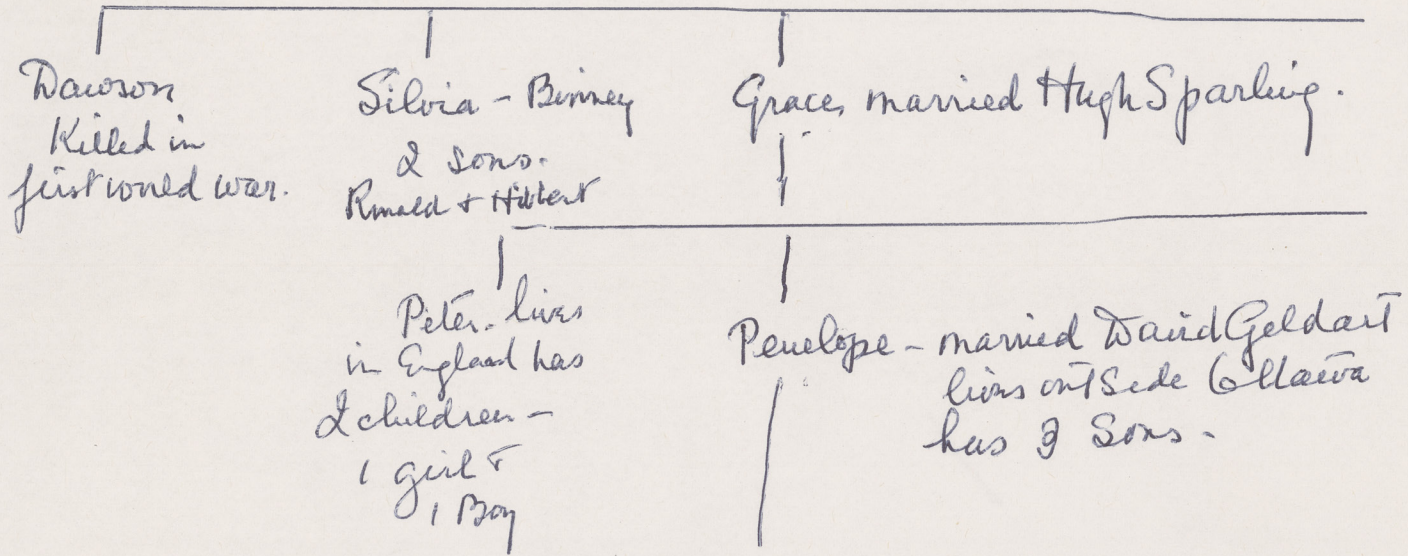 Dawson
Killed in
first world war.
Silvia - Binney
2 sons.
Ronald + Hibbert
Grace, married Hugh Sparling.
Peter. lives
in England has
2 children -
1 girl +
1 Boy
Penelope - married David Geldart
lives outside Ottawa
has 3 Sons.